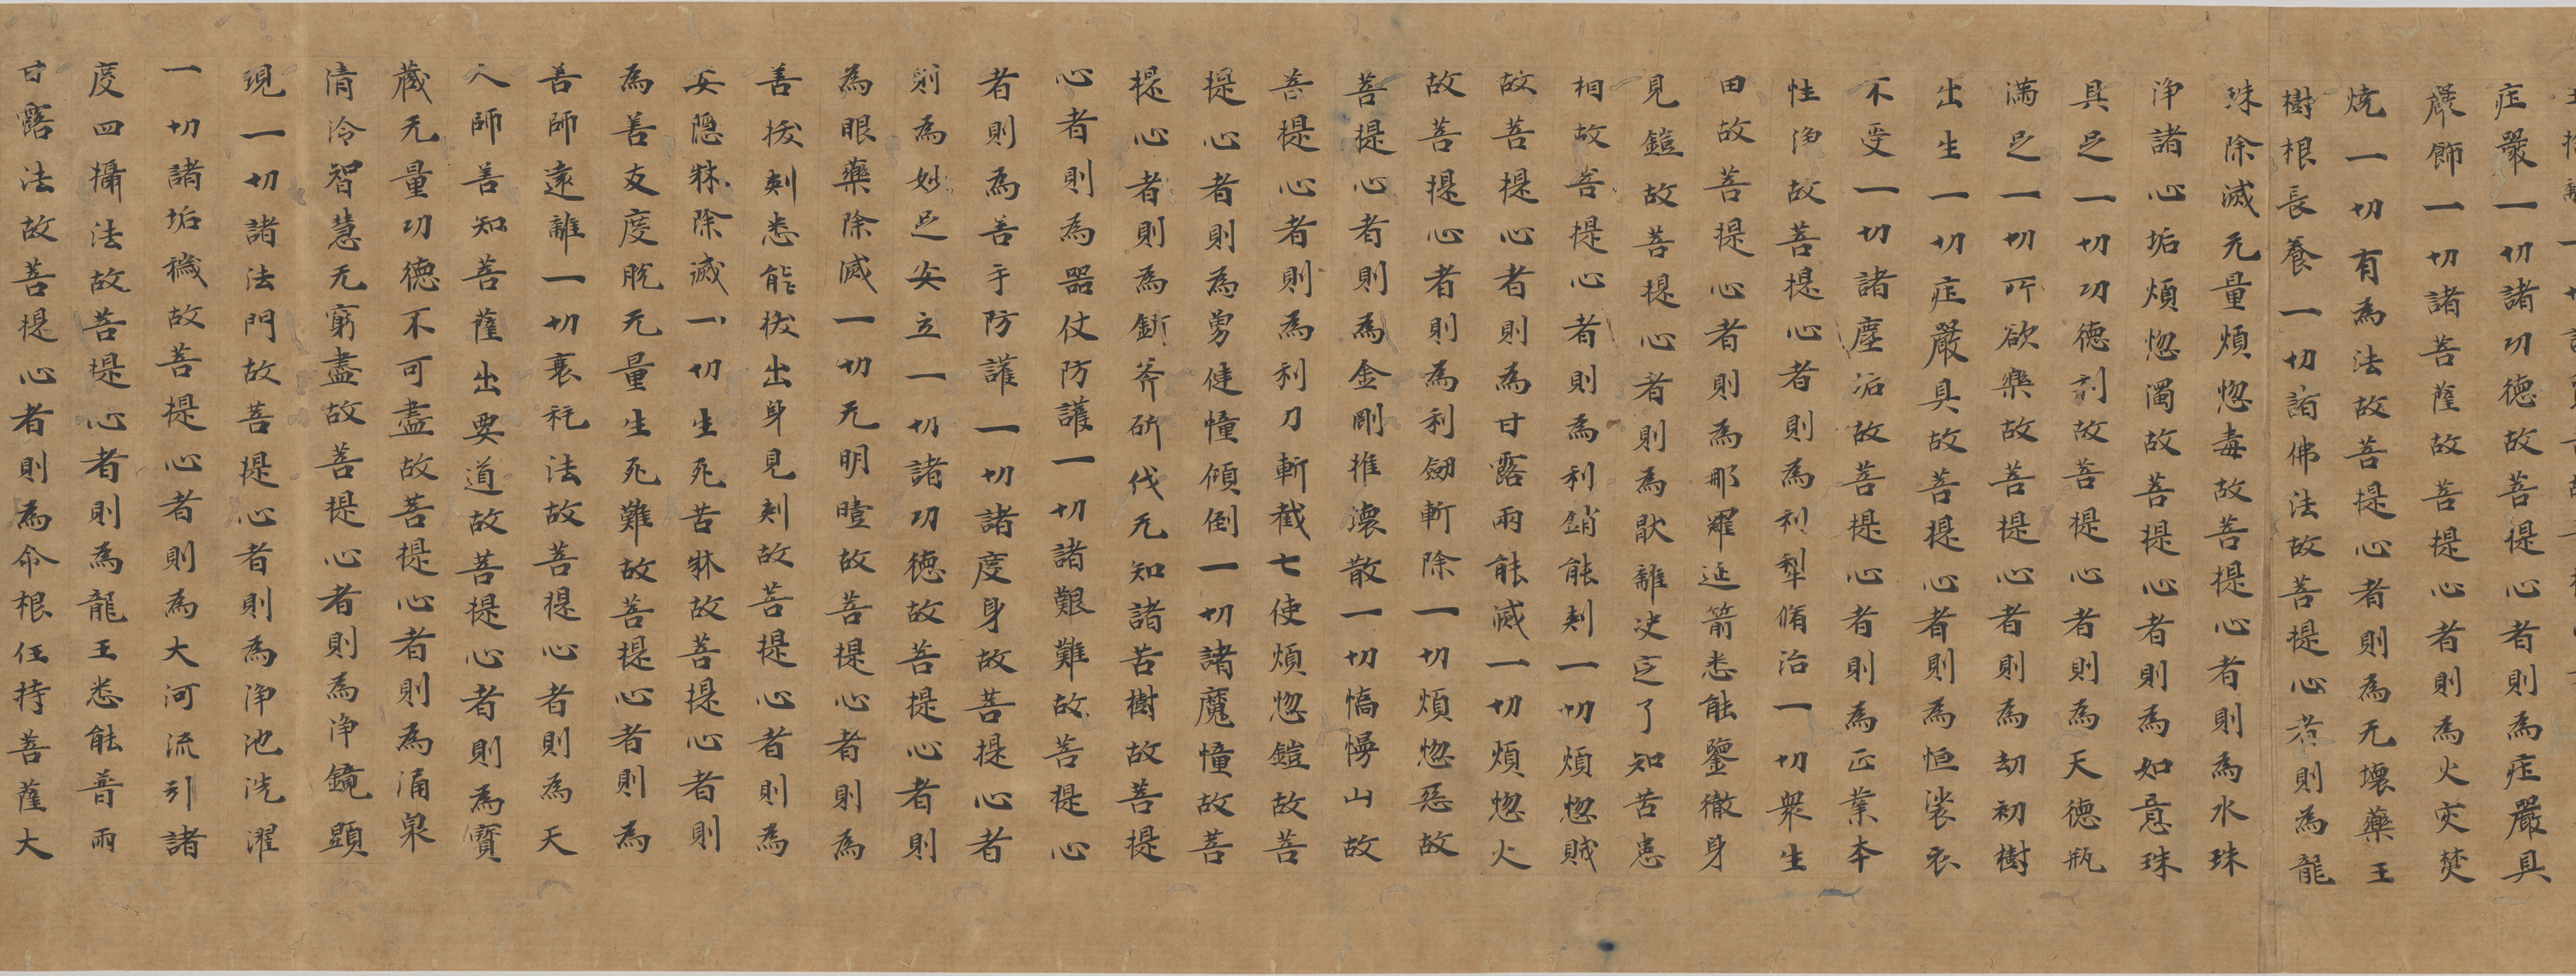 庄嚴一切諸功德故菩提心者則為庄嚴具
嚴飾一切諸菩薩故菩提心者則為火灾焚
燒一切有為法故菩提心者則為无壞藥王
樹根長養一切諸佛法故菩提心者則為龍
珠除滅无量煩惚毒故菩提心者則為水珠
淨諸心垢煩惚濁故菩提心者則為如意珠
具足一切功德利故菩提心者則為天德瓶
滿足一切所欲樂故菩提心者則為劫初樹
出生一切庄嚴具故菩提心者則為恒裟衣
不受一切諸塵垢故菩提心者則為正業本
性淨故菩提心者則為利犁脩治一切衆生
田故菩提心者則為那羅延箭悉能鑒徹身
見鎧故菩提心者則為猒離決定了知苦患
相故菩提心者則為利鎖能刾一切煩惚賊
故菩提心者則為甘露雨能滅一切煩惚火
故菩提心者則為利劒斬除一切煩惚惡故
菩提心者則為金剛摧壞散一切憍慢山故
菩提心者則為利刀斬截七使煩惚鎧故菩
提心者則為勇健幢傾倒一切諸魔幢故菩
提心者則為釿斧斫伐无知諸苦樹故菩提
心者則為器仗防護一切諸艱難故菩提心
者則為善手防護一切諸度身故菩提心者
則為妙足安立一切諸功德故菩提心者則
為眼藥除滅一切无明曀故菩提心者則為
善拔刾悉能拔出身見刾故菩提心者則為
安隱牀除滅一切生死苦牀故菩提心者則
為善友度脫无量生死難故菩提心者則為
善師遠離一切衰秏法故菩提心者則為天
人師善知菩薩出要道故菩提心者則為寶
藏无量功德不可盡故菩提心者則為涌泉
清冷智慧无窮盡故菩提心者則為淨鏡顯
現一切諸法門故菩提心者則為淨池洗濯
一切諸垢穢故菩提心者則為大河流引諸
度四攝法故菩提心者則為龍王悉能普雨
甘露法故菩提心者則為命根任持菩薩大